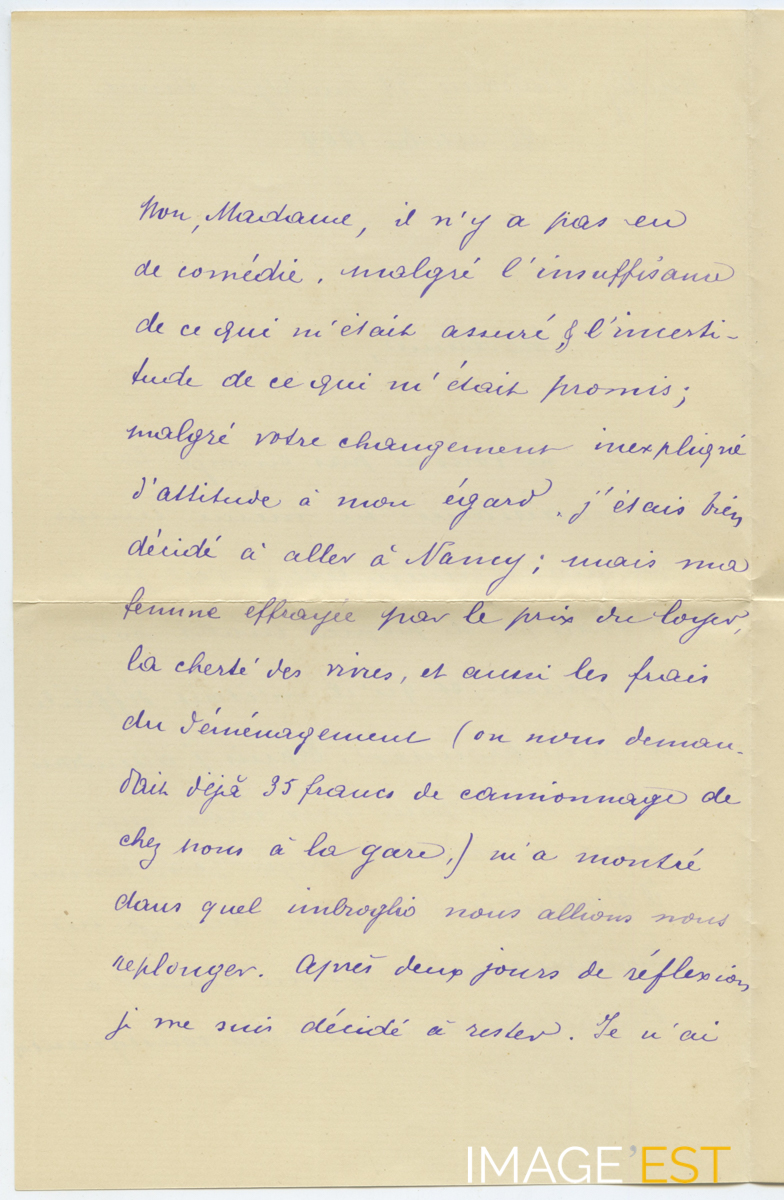 Non, Madame, il n'y a pas eu
de comédie. malgré l'insuffisance
de ce qui m'était assuré & l'incerti-
tude de ce qui m'était promis;
malgré votre changement inexpliqué
d'attitude à mon égard, j'étais bien
décidé à aller à Nancy; mais ma
femme effrayée par le prix du loyer,
la cherté des vivres, et aussi les frais
du déménagement (on nous deman-
dait déjà 35 francs de camionnage de
chez nous à la gare,) m'a montré
dans quel imbroglio nous allions nous
replonger. Après deux jours de réflexion
je me suis décidé à rester. Je n'ai
IMAGE'EST